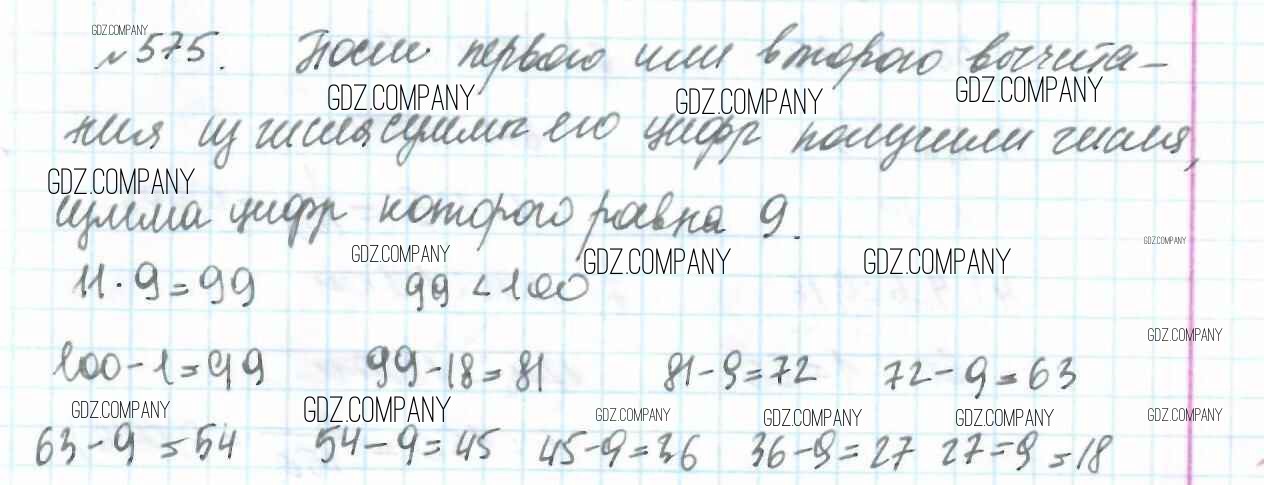 GDZ.COMPANY
№575. После первого или второго вычита-
GDZ.COMPANY GDZ.COMPANY GDZ.COMPANY
ния из числа суммы его цифр получили числа,
GDZ.COMPANY
сумма цифр которого равна 9.
GDZ.COMPANY GDZ.COMPANY GDZ.COMPANY GDZ.COMPANY
11·9=99 99<100
GDZ.COMPANY
100-1=99 99-18=81 81-9=72 72-9=63
GDZ.COMPANY GDZ.COMPANY GDZ.COMPANY GDZ.COMPANY GDZ.COMPANY GDZ.COMPANY
63-9=54 54-9=45 45-9=36 36-9=27 27-9=18